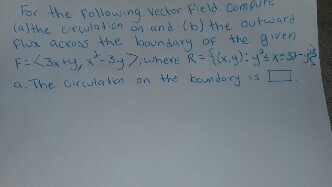 For the following vector field compute
(a) the crculation on and (b) the outward
flux across the boundary of the given
F=<3x+y, x³-3y>, where R = {(x,y): y² ≤ x ≤
a. The circulation on the boundary is □.